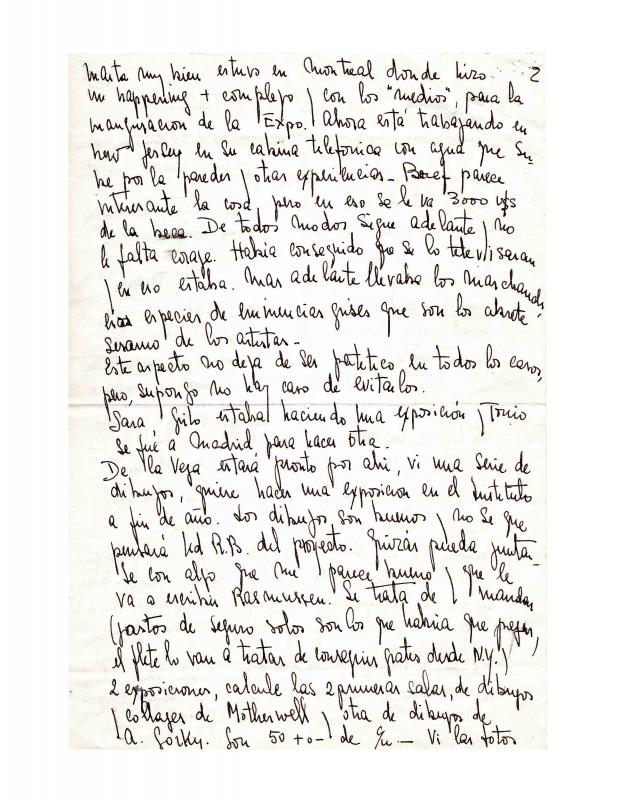 Marta muy bien estuvo en Montreal donde hizo 2
un happening + complejo y con los "medios", para la
inauguracion de la Expo. Ahora está trabajando en
New Jersey en su cabina telefonica con agua que su-
be por la paredes y otras experiencias - parece
interesante la cosa, pero en eso se le va 3000 u$s
de la beca. De todos modos sigue adelante y no
le falta coraje. Habia conseguido que se lo televisaran
y en eso estaba. Mas adelante llevaba los marchands,
esas especies de eminencias grises que son los abrete
sesamo de los artistas -
Este aspecto no deja de ser patetico en todos los casos,
pero, supongo no hay caso de evitarlos.
Sara y Grilo estaban haciendo una exposición y Torio
se fué a Madrid para hacer otra.
De la Vega estará pronto por ahi, vi una serie de
dibujos, quiere hacer una exposicion en el Instituto
a fin de año. Los dibujos son buenos y no se que
pensará Ud R.B. del proyecto. Quizás pueda juntar-
se con algo que me parece bueno y que le
va a escribir Rasmussen. Se trata de mandar
(gastos de seguro solos son los que habria que pagar,
el flete lo van a tratar de conseguir gratis desde N.Y.)
2 exposiciones, calcule las 2 primeras salas, de dibujos
y collages de Motherwell y otra de dibujos de
A. Gorky. Son 50 + o - de c/u. - Vi las fotos